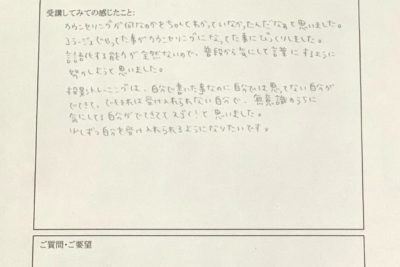 受講してみての感じたこと:
カウンセリングが何なのかをちゃんとわかっていなかったんだなぁと思いました。
コラージュでやった事がカウンセリングになってた事にびっくりしました。
言語化する能力が全然ないので、普段から気にして言葉にするように
努力しようと思いました。
投影トレーニングは、自分で書いた事なのに自分では思ってない自分が
でてきて、でもそれは受け入れられない自分で、無意識のうちに
気にしてる自分がでてきてすごく!と思いました。
少しずつ自分を受け入れられるようになりたいです。
ご質問・ご要望